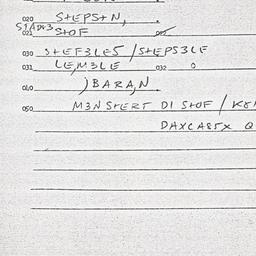 020 STEPSTN,
021 STOF
030 STEF3LES / STEPS3LE
031 LE,M3LE 032 0
040 )BARA,N
050 M3NSTERT DI STOF /
DAXCASTX Q